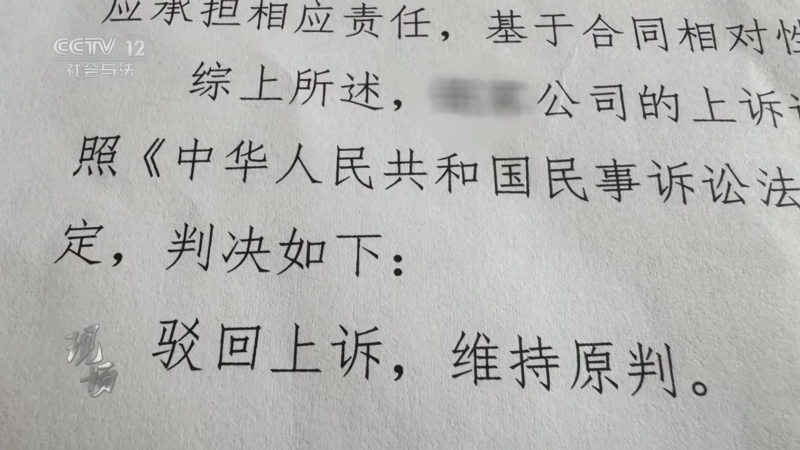 应承担相应责任，基于合同相对性
CCTV 12
社会与法
综上所述，公司的上诉
照《中华人民共和国民事诉讼法
定，判决如下：
驳回上诉，维持原判。
现场